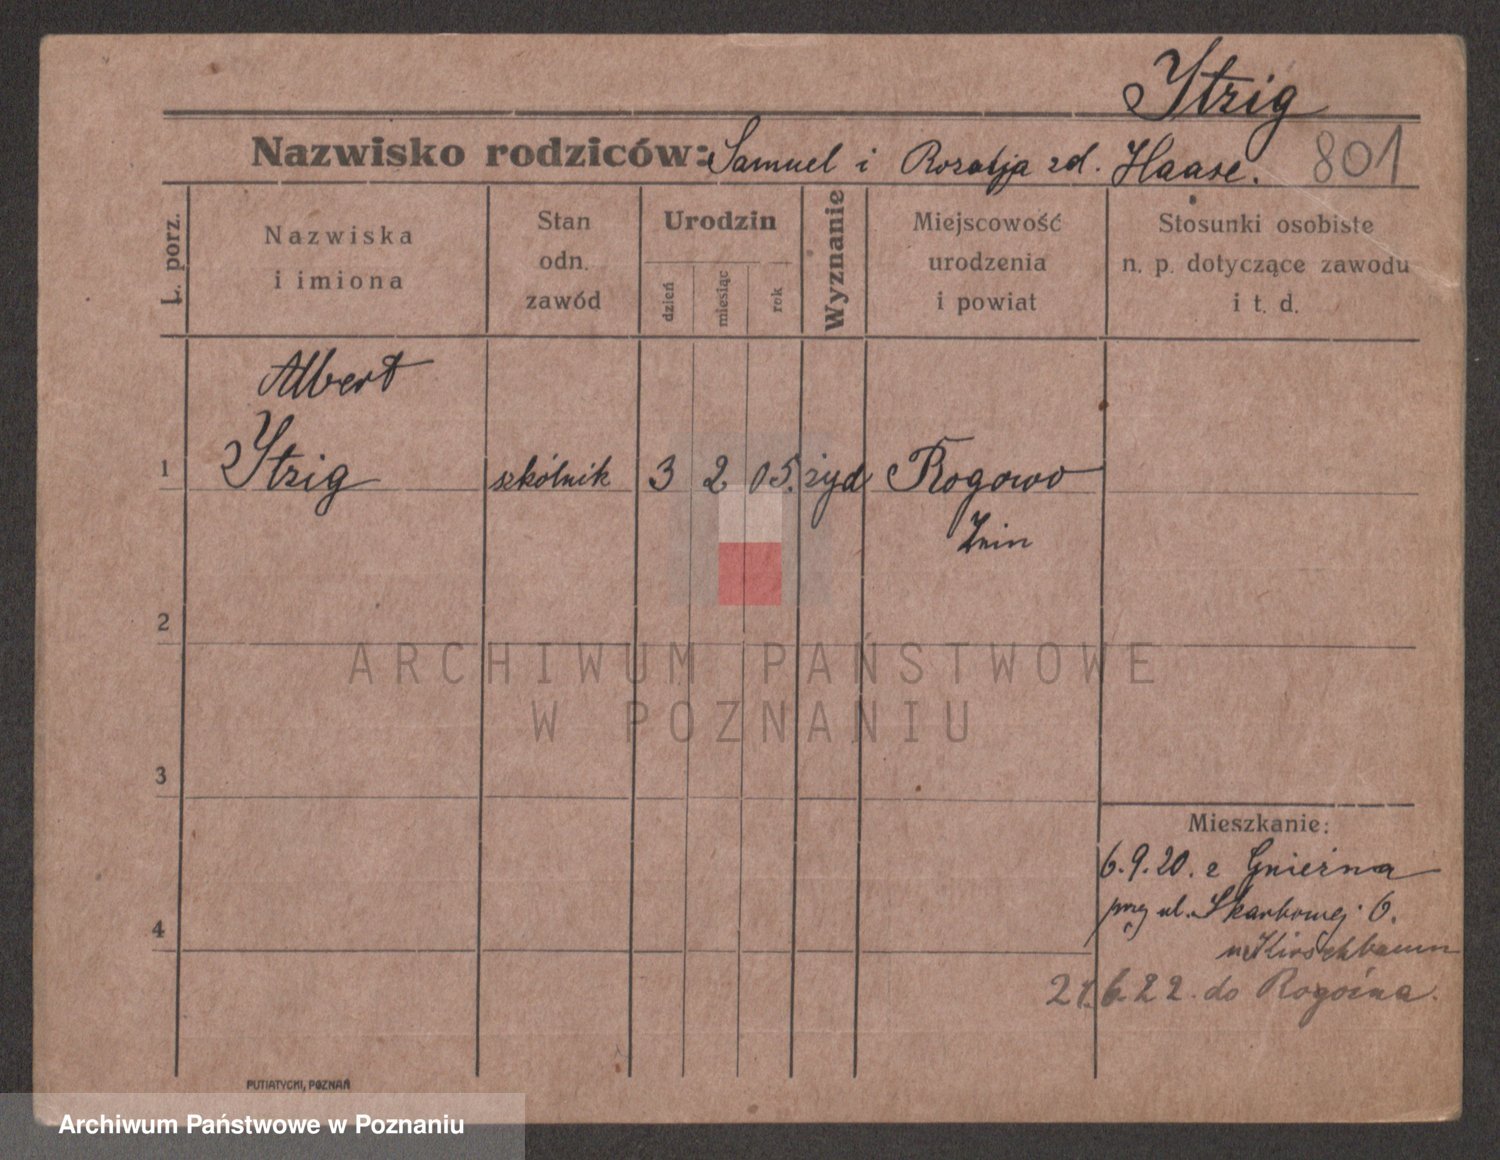 Ytzig
Nazwisko rodziców: Samuel i Rozalja zd. Haase. 801
L. porz.
Nazwiska
i imiona
Stan
odn.
zawód
Urodzin
dzień
miesiąc
rok
Wyznanie
Miejscowość
urodzenia
i powiat
Stosunki osobiste
n. p. dotyczące zawodu
i t. d.
Albert
1 Ytzig szkólnik 3 2 05. żyd Rogowo
Żnin
2
3
4
Mieszkanie:
6.9.20. z Gniezna
przy ul. Skarbowej 6.
u Kirschbaum
21.6.22. do Rogoźna.
PUTIATYCKI, POZNAŃ
ARCHIWUM PAŃSTWOWE
W POZNANIU
Archiwum Państwowe w Poznaniu